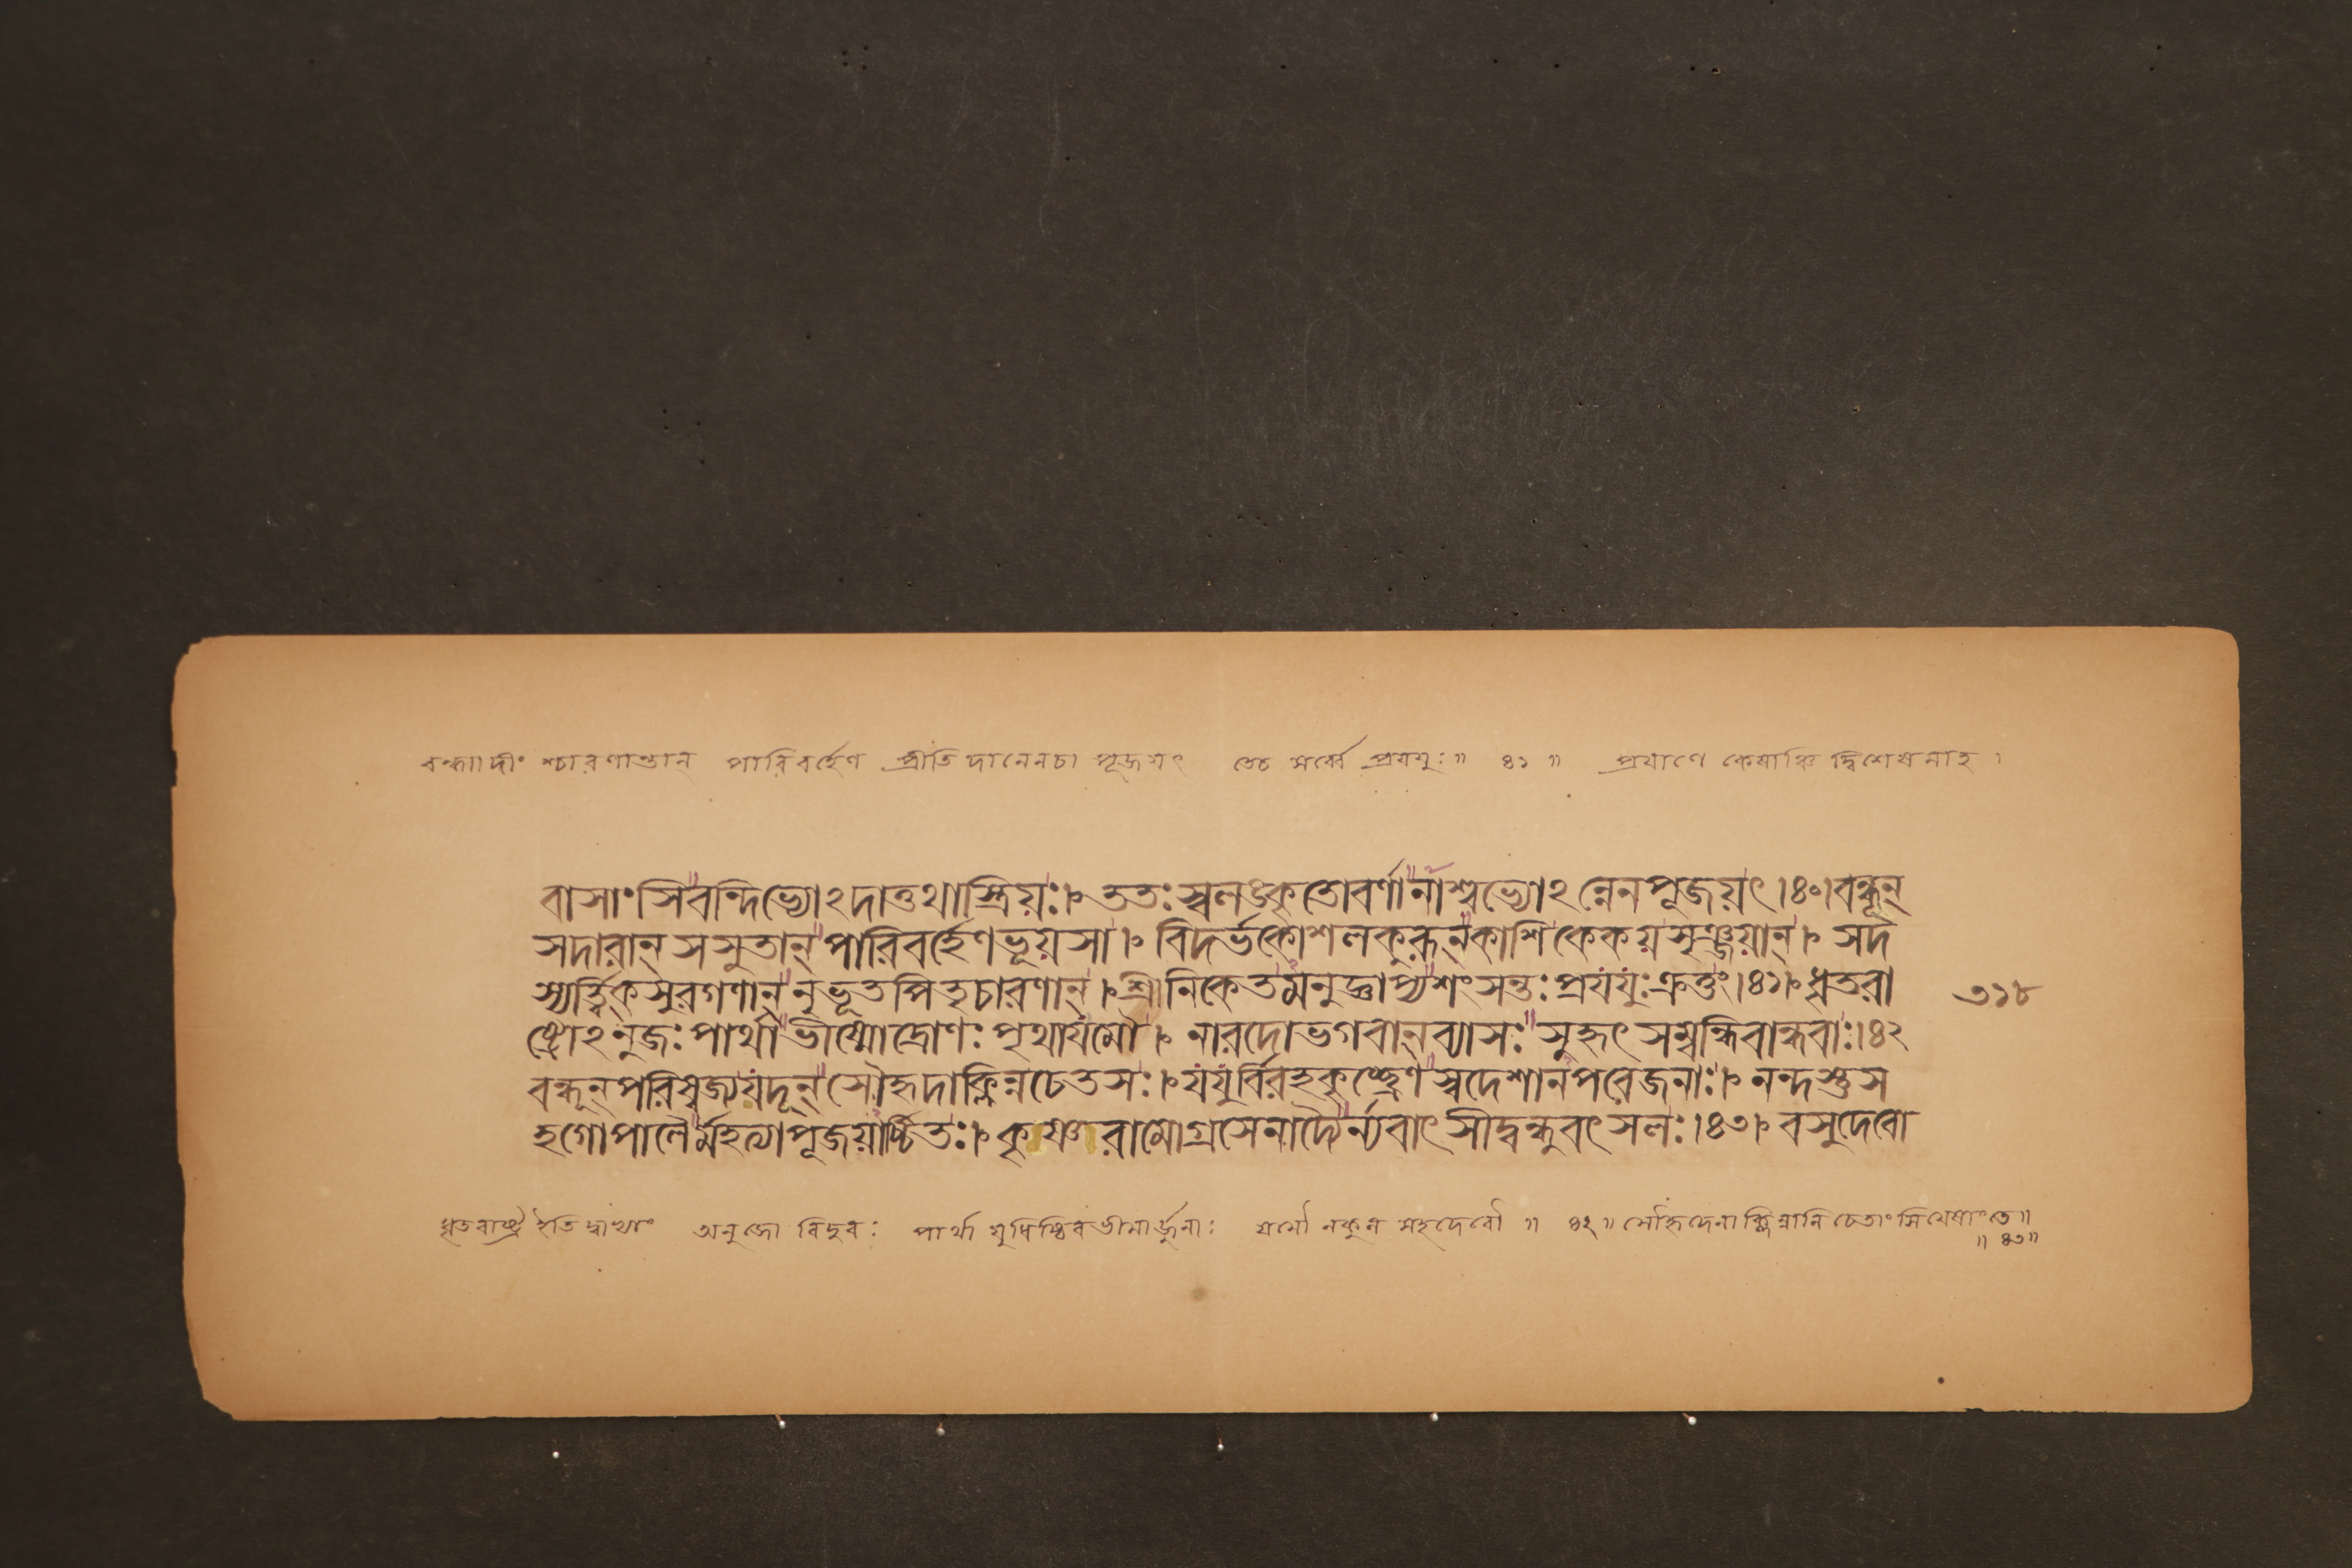 বন্ধ্বাদীংশ্চারণান্তান্ পারিবর্হেণ প্রীতিদানেনচা পূজয়ৎ তেচ সর্ব্বে প্রযযুঃ॥ ৪১ ॥ প্রয়াণে কেষাঞ্চিদ্বিশেষমাহ ।
বাসাংসিবন্দিভ্যোঽদাত্তথাস্ত্রিয়ঃ। ততঃস্বলঙ্কৃতোবর্ণানাশ্বভ্যোঽন্নেনপূজয়ৎ।৪০।বন্ধূন্
সদারান্ সসুতান্ পারিবর্হেণভূয়সা। বিদর্ভকোশলকুরূন্ কাশিকেকয়সৃঞ্জয়ান্। সদ
স্যর্ত্বিকসুরগণান্ নৃভূতপিতৃচারণান্। শ্রীনিকেতমনুজ্ঞাপ্যশংসন্তঃপ্রযযুঃক্রতুং।৪১। ধৃতরা
৩১৮
ষ্ট্রোঽনুজঃপার্থাভীষ্মোদ্রোণঃপৃথাযমৌ। নারদোভগবান্ব্যাসঃসুহৃৎসম্বন্ধিবান্ধবাঃ।৪২
বন্ধূন্পরিষ্বজ্যযদূন্ সৌহৃদাক্লিন্নচেতসঃ। যযুর্বিরহকৃচ্ছ্রেণস্বদেশানপরেজনাঃ। নন্দস্তুস
হগোপালৈর্মহত্যাপূজয়ার্চ্চিতঃ। কৃষ্ণরামোগ্রসেনাদ্যৈর্ন্যবাৎসীদ্বন্ধুবৎসলঃ।৪৩। বসুদেবো
ধৃতরাষ্ট্র ইতি দ্বাভ্যাং অনুজো বিদুরঃ পার্থা যুধিষ্ঠিরভীমার্জ্জুনাঃ যমৌ নকুল সহদেবৌ ॥ ৪২॥ সৌহৃদেনাক্লিন্নানি চেতাংসিযেষাংতে॥
॥ ৪৩॥